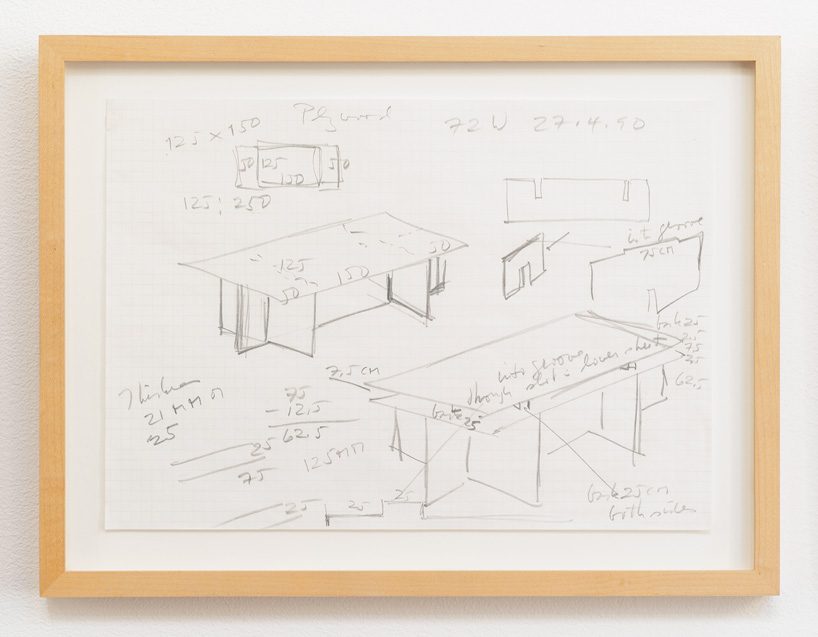 Plywood
72 W 27.4.90
125 x 150
50 125 50
150
125 : 250
into groove
75 CM
125 50
50 150
25
25
75
25
62,5
7,5 CM
into groove
through slot lower sheet
25
21 MM
25
75
- 12,5
62,5
125 MM
25
75
25 25 25
25 CM
both sides